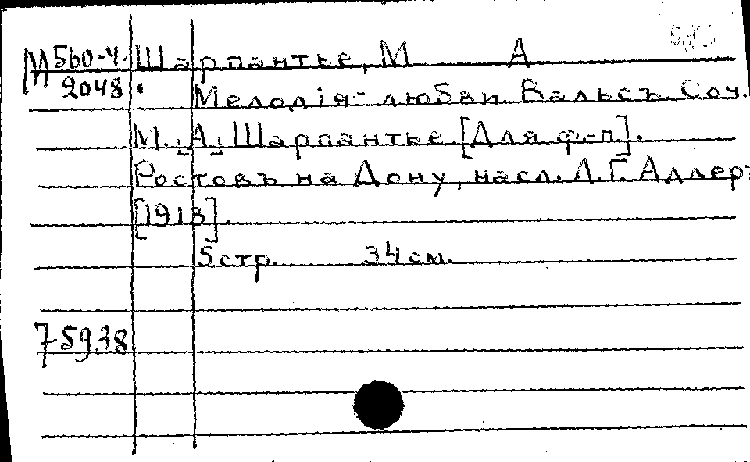 М 560-4.
2048
Шарпантье, М А
Мелодія-любви Вальсъ. Соч.
М. А. Шарпантье. [Для ф-п].
Ростовъ на Дону, насл. Л. Г. Адлеръ
[1913].
5 стр. 34 см.
75938